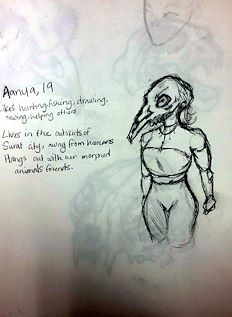 Aanula, 19
Likes hunting, fishing, drawing,
sewing, helping others
Lives in the outskirts of
Surat city, away from humans
Hangs out with her morpuid
animals friends.